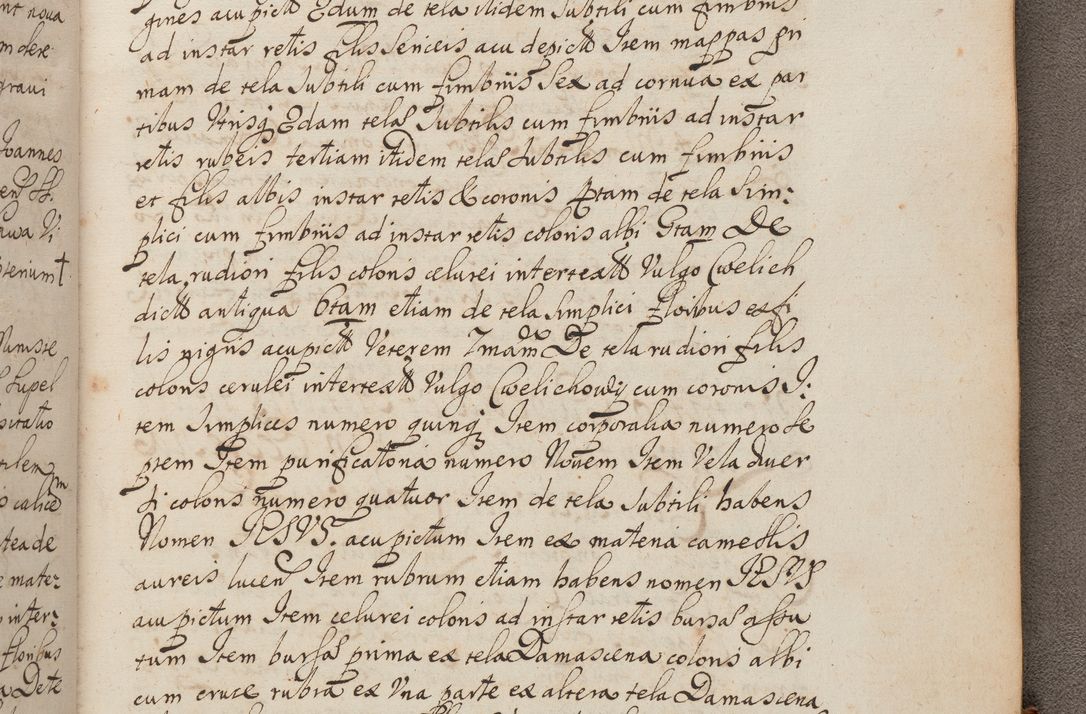 nt noua
m dere
graui
Joannes
rium †
Supel
sitatio
calice
tea de
mater:
inter:
floribus
a De te
gines acu pict Edam de tela itidem subtili cum fimbriis
ad instar retis filis sericeis acu depict Item mappas pri
mam de tela subtili cum fimbriis sex ad cornua ex par
tibus Utrisq 2dam tela subtilis cum fimbriis ad instar
retis rubeis tertiam itidem tela subtilis cum fimbriis
et filis albis instar retis & coronis 4tam de tela sim:
plici cum fimbriis ad instar retis coloris albi 5tam De
tela rudiori filis coloris celurei intertext Vulgo Cwelich
dict antiqua 6tam etiam de tela simplici floribus ex fi
lis nigris acupict Veterem 7mam De tela rudiori filis
coloris cerulei intertext Vulgo Cwelichowy cum coronis I:
tem simplices numero quinq Item corporalia numero se
ptem Item purificatoria numero Nouem Item Vela diuer
si coloris numero quatuor Item de tela subtili habens
Nomen IESVS. acupictum Item ex materia camellis
aureis lucen Item rubrum etiam habens nomen IESVS
acu pictum Item celurei coloris ad instar retis bursa assu
tum Item bursas prima ex tela Damascena coloris albi
cum cruce rubra ex Vna parte ex altera tela Damascena